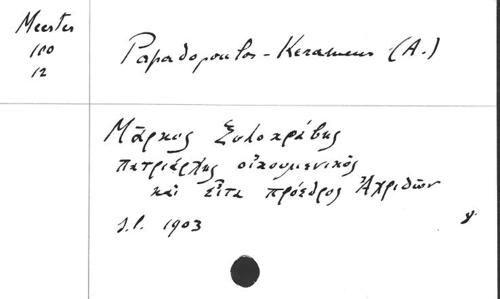 Meester
100
12
Papadopoulos-Kerameus (A.)
Μᾶρκος Ξυλοκράβης
πατριάρχης οἰκουμενικὸς
καὶ εἶτα πρόεδρος Ἀχριδῶν
s.l. 1903